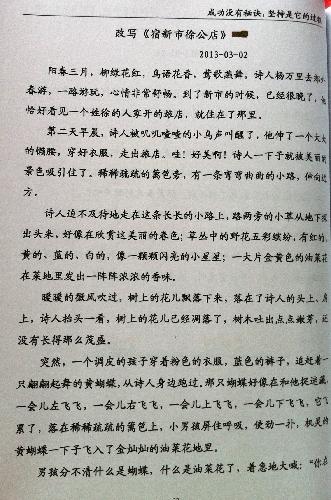 成功没有秘诀，坚持是它的过程
改写《宿新市徐公店》
2013-03-02
阳春三月，柳绿花红，鸟语花香，莺歌燕舞，诗人杨万里去
春游，一路游玩，心情非常舒畅。到了新市的时候，已经很晚了，他
恰好看见一个姓徐的人家开的旅店，就住在了那里。
第二天早晨，诗人被叽叽喳喳的小鸟声叫醒了，他伸了一个大大
的懒腰，穿好衣服，走出旅店。哇！好美啊！诗人一下子就被美丽的
景色吸引住了。稀稀疏疏的篱笆旁，有一条弯弯曲曲的小路，伸向远
方。
诗人迫不及待地走在这条长长的小路上，路两旁的小草从地下探
出头来，好像在欣赏这美丽的春色；草丛中的野花五彩缤纷，有红的、
黄的、蓝的、白的，像一颗颗闪亮的小星星；一大片金黄色的油菜花
在菜地里发出一阵阵浓浓的香味。
暖暖的微风吹过，树上的花儿飘落下来，落在了诗人的头上、身
上，诗人抬头一看，树上的花儿已经凋落了，树木吐出点点嫩芽，还
没有长得那么茂盛。
突然，一个调皮的孩子穿着粉色的衣服，蓝色的裤子，追赶着一
只翩翩起舞的黄蝴蝶，从诗人身边跑过，那只蝴蝶好像在和他捉迷藏，
一会儿左飞飞，一会儿右飞飞，一会儿上飞飞，一会儿下飞飞，它飞
累了，落在稀稀疏疏的篱笆上，小男孩屏住呼吸，使劲一扑，机灵的
黄蝴蝶一下子飞入了金灿灿的油菜花地里。
男孩分不清什么是蝴蝶，什么是油菜花了，着急地大喊：“你在